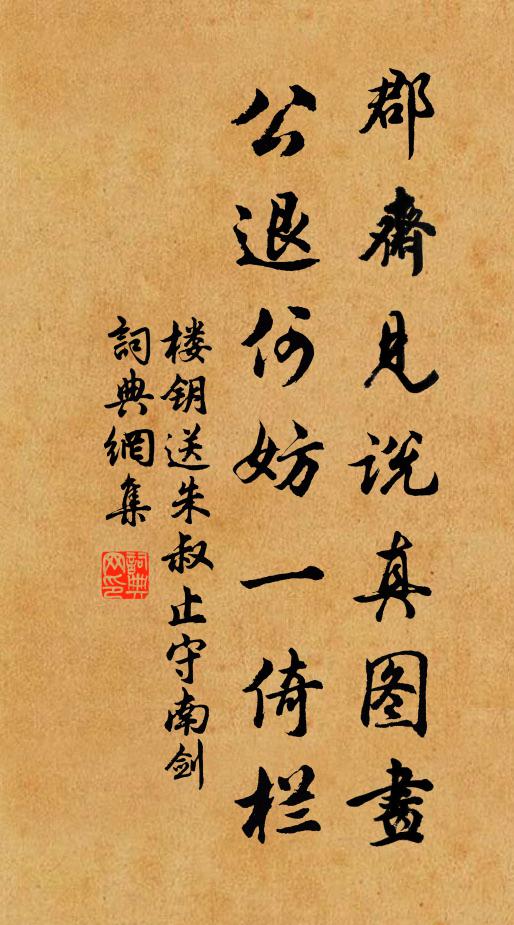 郡齋見说真图畫
公退何妨一倚栏
楼钥送朱叔止守南剑
詞典網集
詞典网印